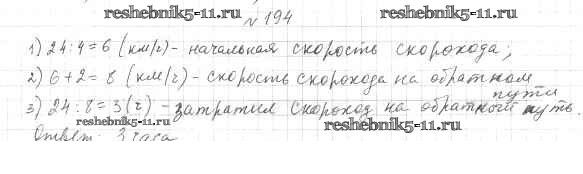 reshebnik5-11.ru
reshebnik5-11.ru
№ 194
1) 24:4=6 (км/ч) - начальная скорость скорохода;
2) 6+2=8 (км/ч) - скорость скорохода на обратном
пути
3) 24:8=3 (ч) - затратил скороход на обратный путь.
reshebnik5-11.ru
reshebnik5-11.ru
Ответ: 3 часа